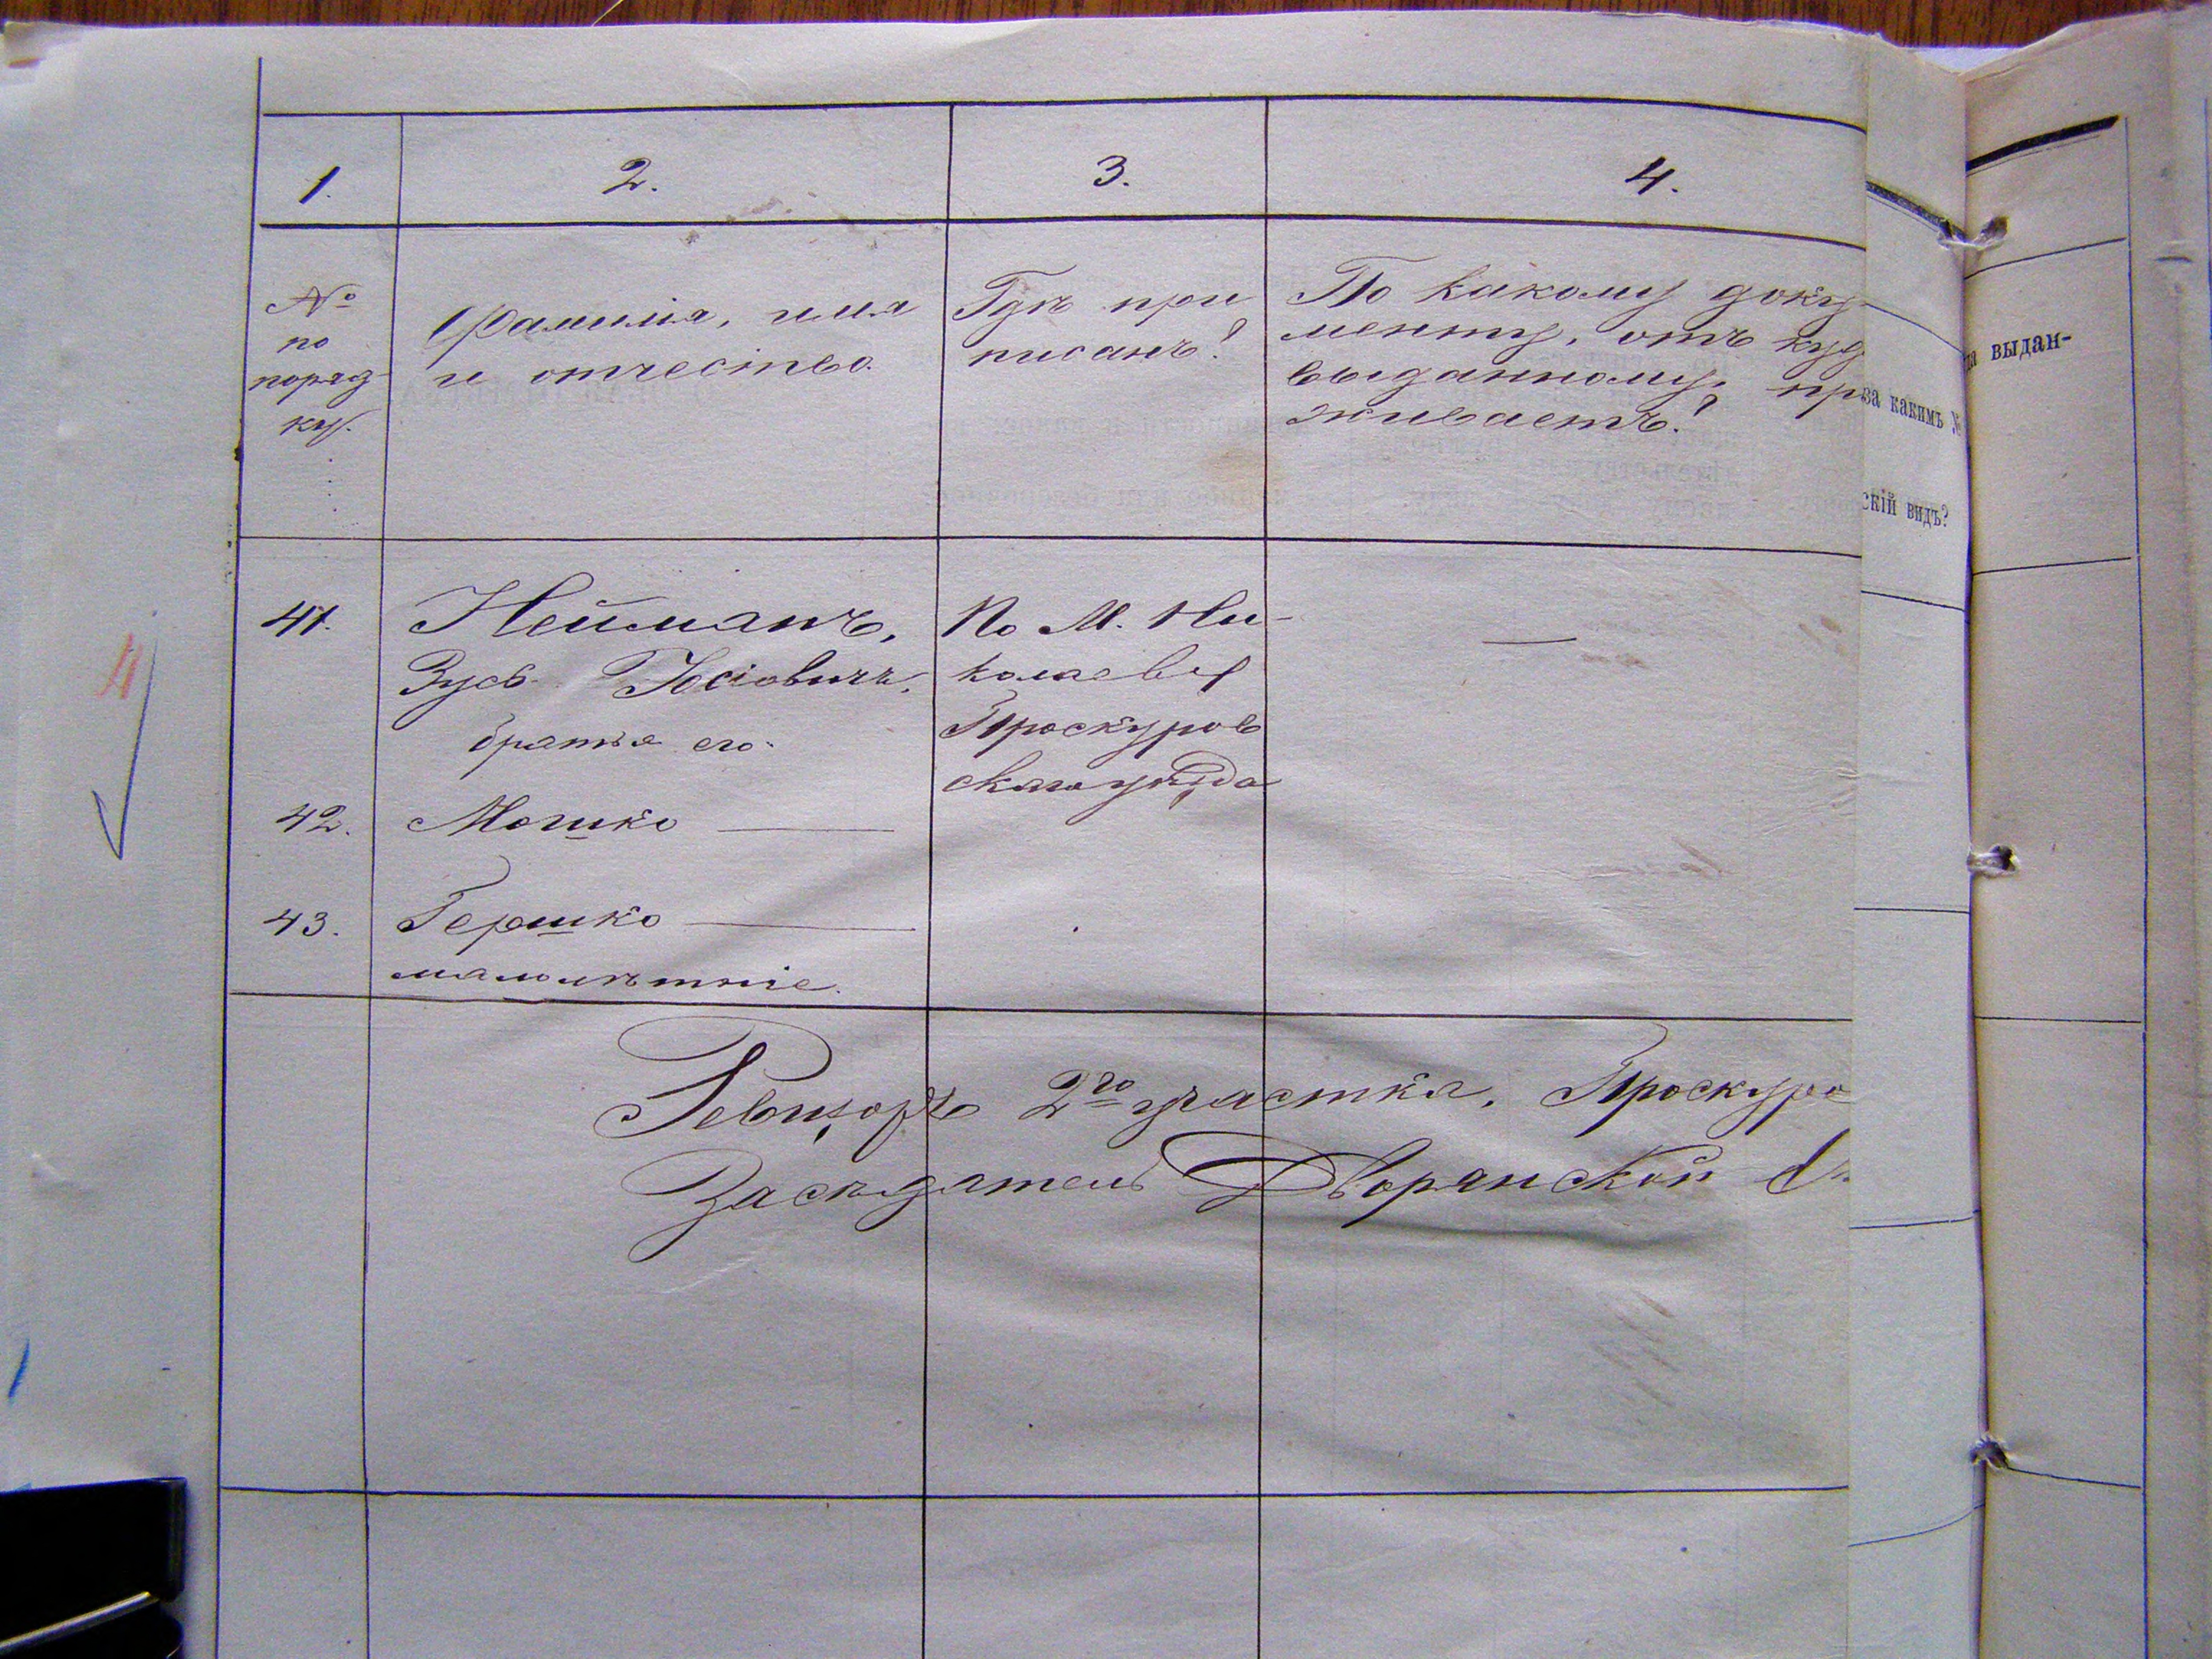 1.
2.
3.
4.
№
по
поряд
ку.
Фамилія, имя
и отчество.
Гдѣ при
писанъ?
По какому доку-
менту, отъ куд
выданному, пр
живаетъ?
41.
Нейманъ,
Зусь Іосіовичъ,
братья его
По М. Ни-
колаеву
Проскуров
скаго уѣзда
—
42.
Мошко —
43.
Гершко —
малолѣтніе.
Ревизоръ 2го участка, Проскуро
Засѣдатель Дворянской
за какимъ №
скій видъ?
на выдан-